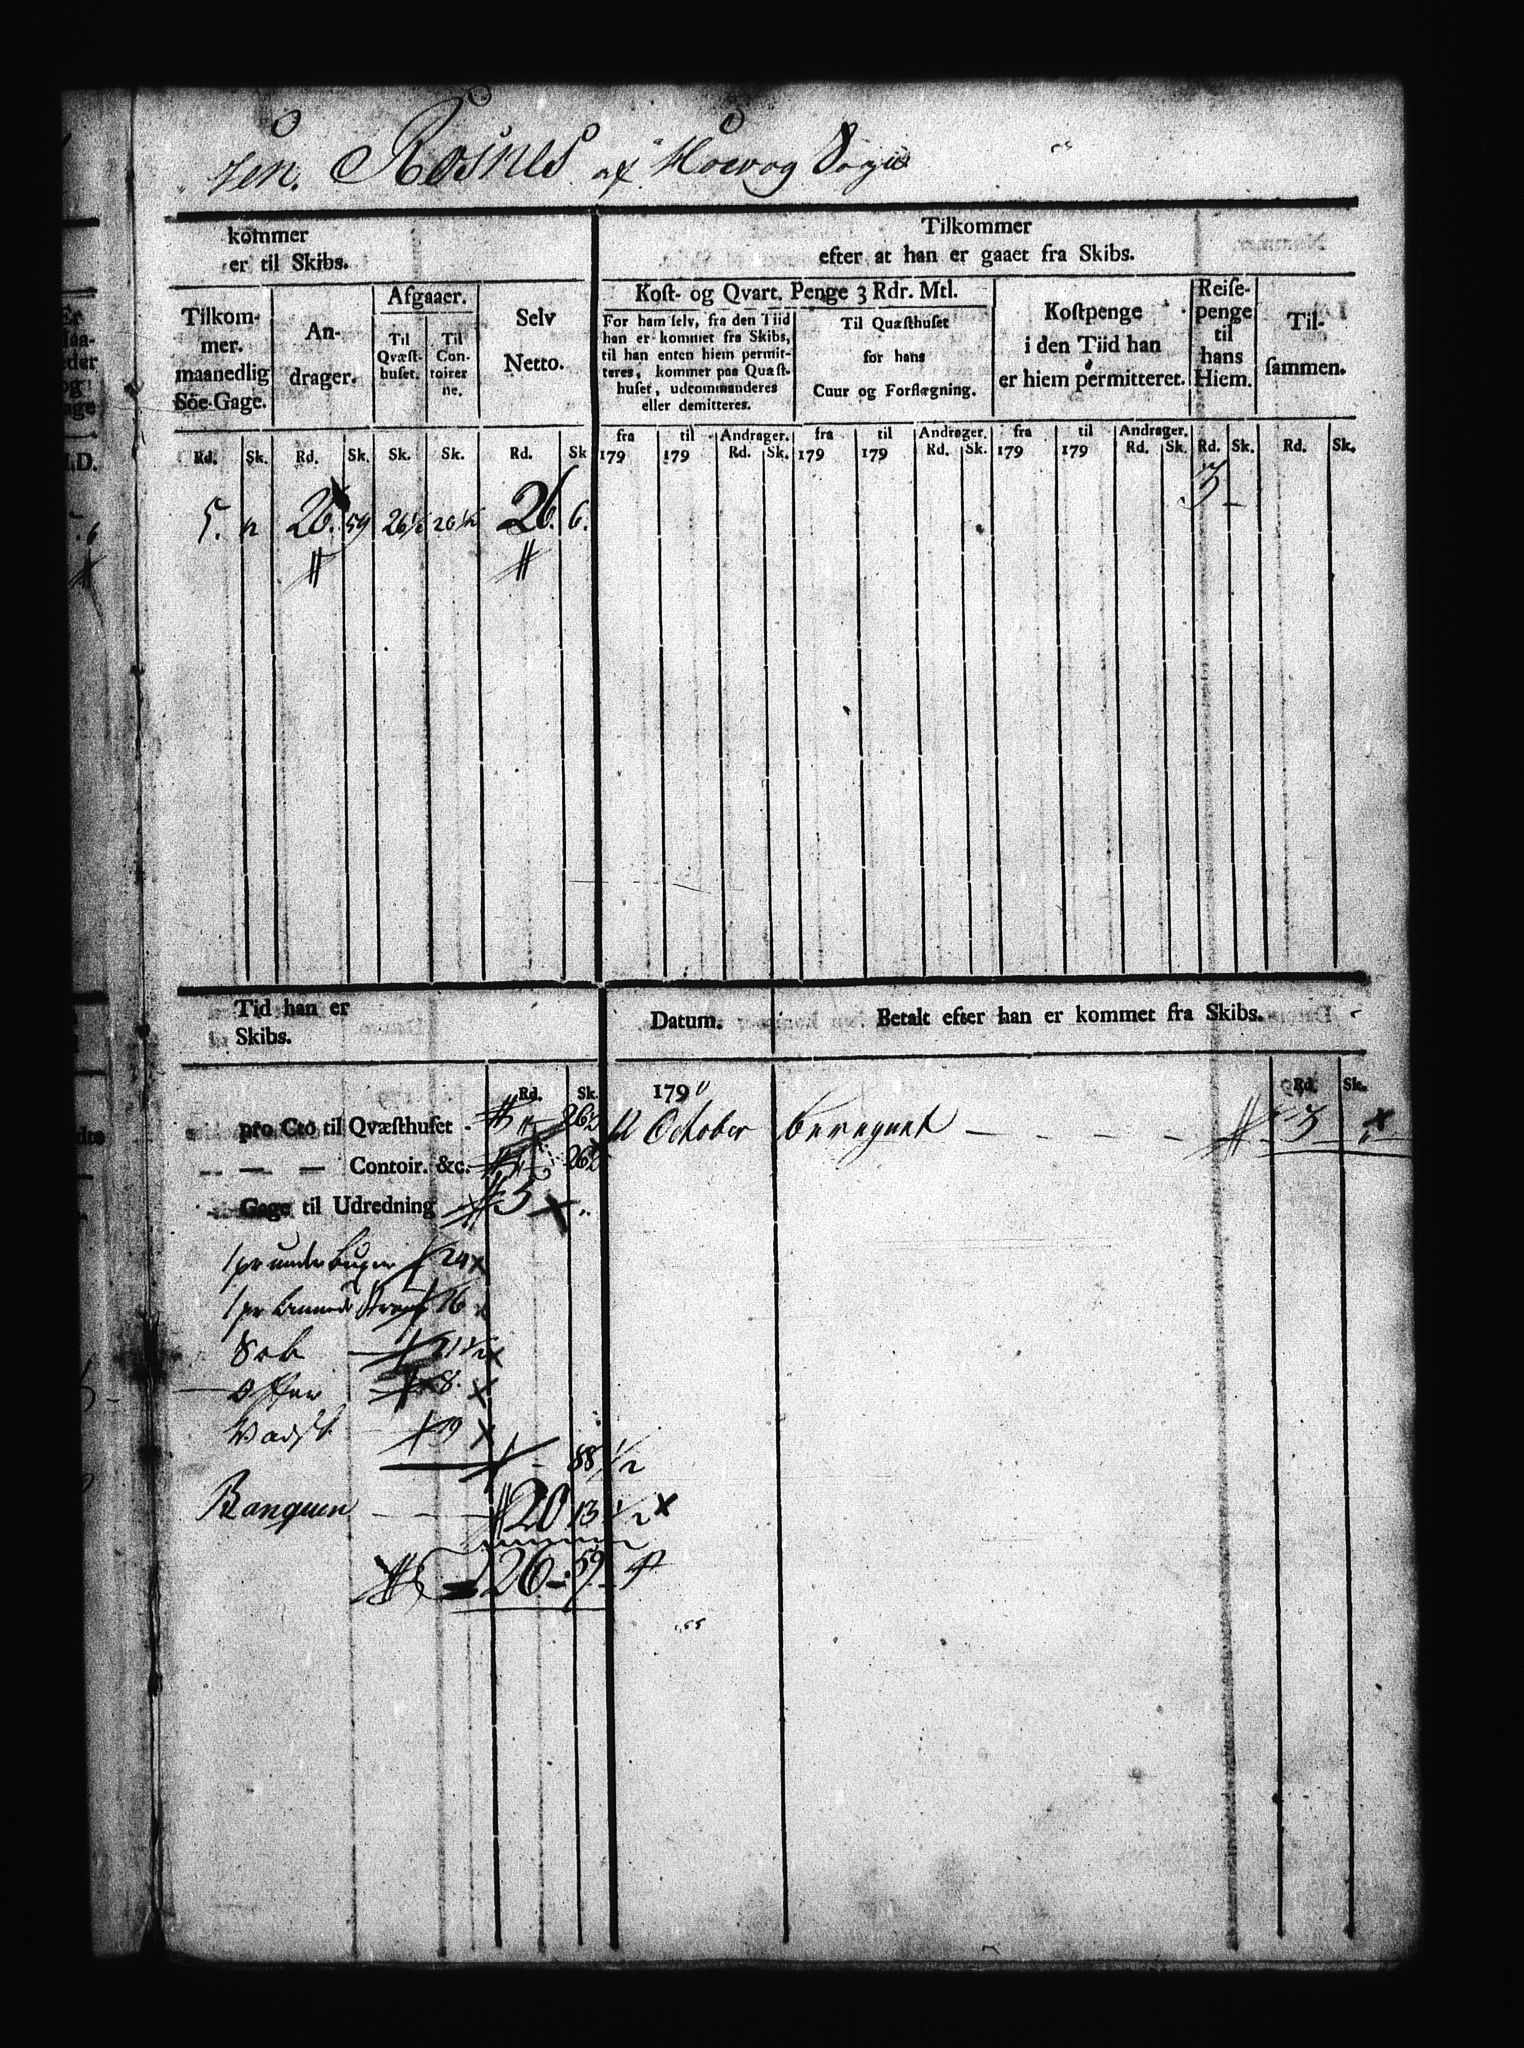 sen. Røsnes af Høevog Sogn
kommer
er til Skibs.
Tilkommer
efter at han er gaaet fra Skibs.
Tilkom-
mer.
maanedlig
Søe-Gage.
An-
drager.
Afgaaer.
Til
Qvæst-
huset.
Til
Con-
toirer
ne.
Selv
Netto.
Kost- og Qvart. Penge 3 Rdr. Mtl.
For ham selv, fra den Tiid
han er kommet fra Skibs,
til han enten hiem permit-
teres, kommer paa Quæst-
huset, udcommanderes
eller demitteres.
Til Quæsthuset
for hans
Cuur og Forflægning.
Kostpenge
i den Tiid han
er hiem permitteret.
Reise-
penge
til
hans
Hiem.
Til-
sammen.
fra til Andrager. fra til Andrager. fra til Andrager.
Rd. Sk. Rd. Sk. Sk. Sk. Rd. Sk 179 179 Rd. Sk. 179 179 Rd. Sk. 179 179 Rd. Sk. Rd. Sk. Rd. Sk.
3
5. " 26. 59 26½ 26½ 26. 6.
Tid han er
Skibs.
Datum.
Betalt efter han er kommet fra Skibs.
Rd. Sk. 179 Rd. Sk.
pro Cto til Qvæsthuset - " 26½
October beregnet 3 "
— — — Contoir. &c. " 26½
Gage til Udredning 5 "
24
16
11½
Offer 8.
9
88½
Banquen 20 13½
26 - 59